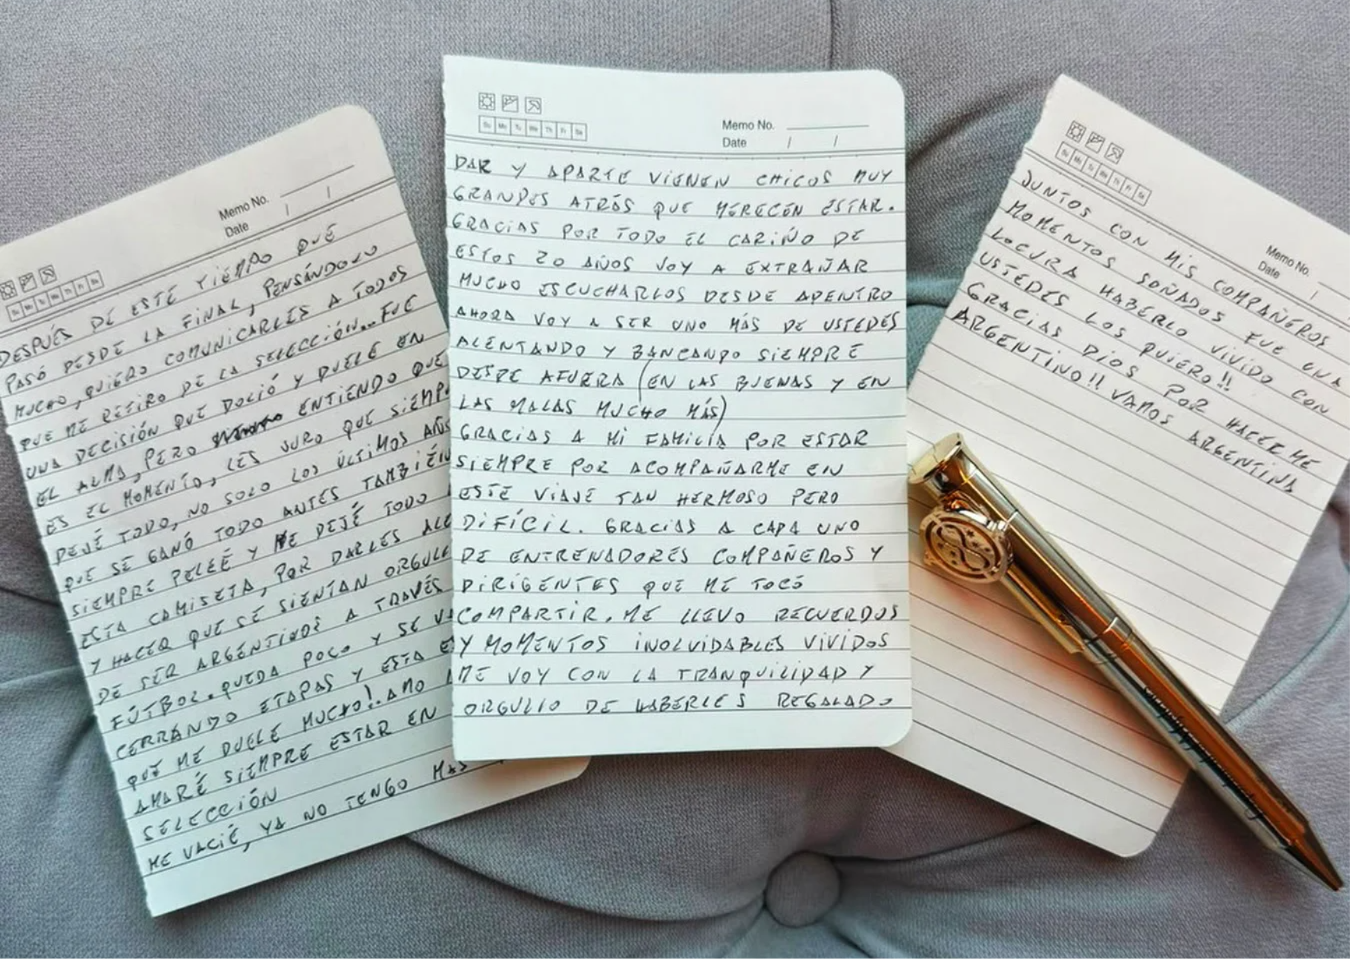 Memo No.
Date / /
Su Mo Tu We Th Fr Sa
DESPUÉS DE ESTE TIEMPO QUE
PASÓ DESDE LA FINAL, PENSÁNDOLO
MUCHO, QUIERO COMUNICARLES A TODOS
QUE ME RETIRO DE LA SELECCIÓN... FUE
UNA DECISIÓN QUE DOLIÓ Y DUELE EN
EL ALMA, PERO ENTIENDO QUE
ES EL MOMENTO, LES JURO QUE SIEMP
DEJÉ TODO, NO SOLO LOS ÚLTIMOS AÑOS
QUE SE GANÓ TODO ANTES TAMBIÉN
SIEMPRE PELEÉ Y ME DEJÉ TODO
ESTA CAMISETA, POR DARLES ALE
Y HACER QUE SE SIENTAN ORGULL
DE SER ARGENTINOS A TRAVÉS
FÚTBOL. QUEDA POCO Y SE VA
CERRANDO ETAPAS Y ESTA ES
QUE ME DUELE MUCHO!. AMO
AMARÉ SIEMPRE ESTAR EN
SELECCIÓN
ME VACIÉ, YA NO TENGO MAS
Memo No.
Date / /
Su Mo Tu We Th Fr Sa
DAR Y APARTE VIENEN CHICOS MUY
GRANDES ATRÁS QUE MERECEN ESTAR.
GRACIAS POR TODO EL CARIÑO DE
ESTOS 20 AÑOS VOY A EXTRAÑAR
MUCHO ESCUCHARLOS DESDE ADENTRO
AHORA VOY A SER UNO MÁS DE USTEDES
ALENTANDO Y BANCANDO SIEMPRE
DESDE AFUERA (EN LAS BUENAS Y EN
LAS MALAS MUCHO MÁS)
GRACIAS A MI FAMILIA POR ESTAR
SIEMPRE POR ACOMPAÑARME EN
ESTE VIAJE TAN HERMOSO PERO
DIFÍCIL. GRACIAS A CADA UNO
DE ENTRENADORES COMPAÑEROS Y
DIRIGENTES QUE ME TOCÓ
COMPARTIR. ME LLEVO RECUERDOS
Y MOMENTOS INOLVIDABLES VIVIDOS
ME VOY CON LA TRANQUILIDAD Y
ORGULLO DE HABERLES REGALADO
Memo No.
Date /
Su Mo Tu We Th Fr Sa
JUNTOS CON MIS COMPAÑEROS
MOMENTOS SOÑADOS FUE UNA
LOCURA HABERLO VIVIDO CON
USTEDES LOS QUIERO!!
GRACIAS DIOS POR HACERME
ARGENTINO!! VAMOS ARGENTINA